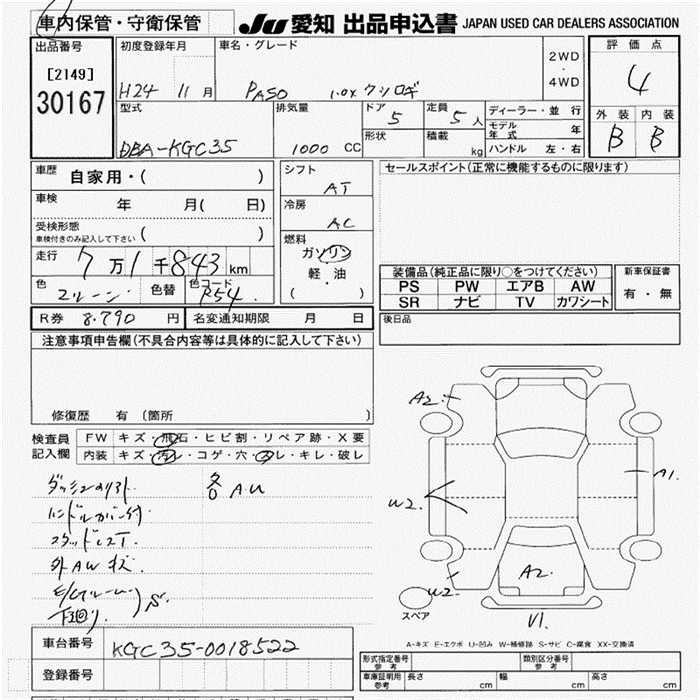 車内保管・守衛保管
JU 愛知 出品申込書 JAPAN USED CAR DEALERS ASSOCIATION
出品番号
[2149]
30167
初度登録年月
H24 11 月
車名・グレード
PASSO 1.0X クツロギ
2WD
・
4WD
評価点
4
外装 内装
B B
型式
DBA-KGC35
排気量
1000 CC
ドア 5
形状
定員 5 人
積載 kg
ディーラー・並行
モデル年式 年
ハンドル 左・右
車歴 自家用・( )
車検 年 月( 日)
受検形態
車検付きのみ記入して下さい ( )
走行 7 万 1 千 843 km
色
色替
色コード R54
シフト
AT
冷房
AC
燃料
ガソリン
・
軽油
・
( )
セールスポイント(正常に機能するものに限ります)
装備品(純正品に限り○をつけてください)
PS PW エアB AW
SR ナビ TV カワシート
新車保証書
有・無
R券 8.790 円 名変通知期限 月 日
後日品
注意事項申告欄(不具合内容等は具体的に記入して下さい)
修復歴 有 (箇所 )
検査員
記入欄
FW キズ・飛石・ヒビ割・リペア跡・X要
内装 キズ・汚レ・コゲ・穴・スレ・キレ・破レ
各AU
外AWキズ
下回り S
A2
A1
W2
W2
A2
V1
スペア
A-キズ E-エクボ U-凹み W-補修跡 S-サビ C-腐食 XX-交換済
車台番号 KGC35-0018522
登録番号
形式指定番号 参考
類別区分番号 参考
車庫証明用 参考 長さ cm 幅 cm 高さ cm